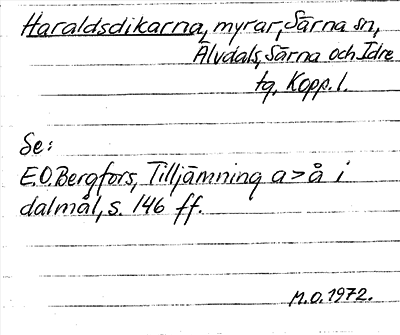 Haraldsdikarna, myrar, Särna sn,
Älvdals, Särna och Idre
tg, Kopp. l.
Se:
E.O. Bergfors, Tilljämning a > å i
dalmål, s. 146 ff.
M.O. 1972.